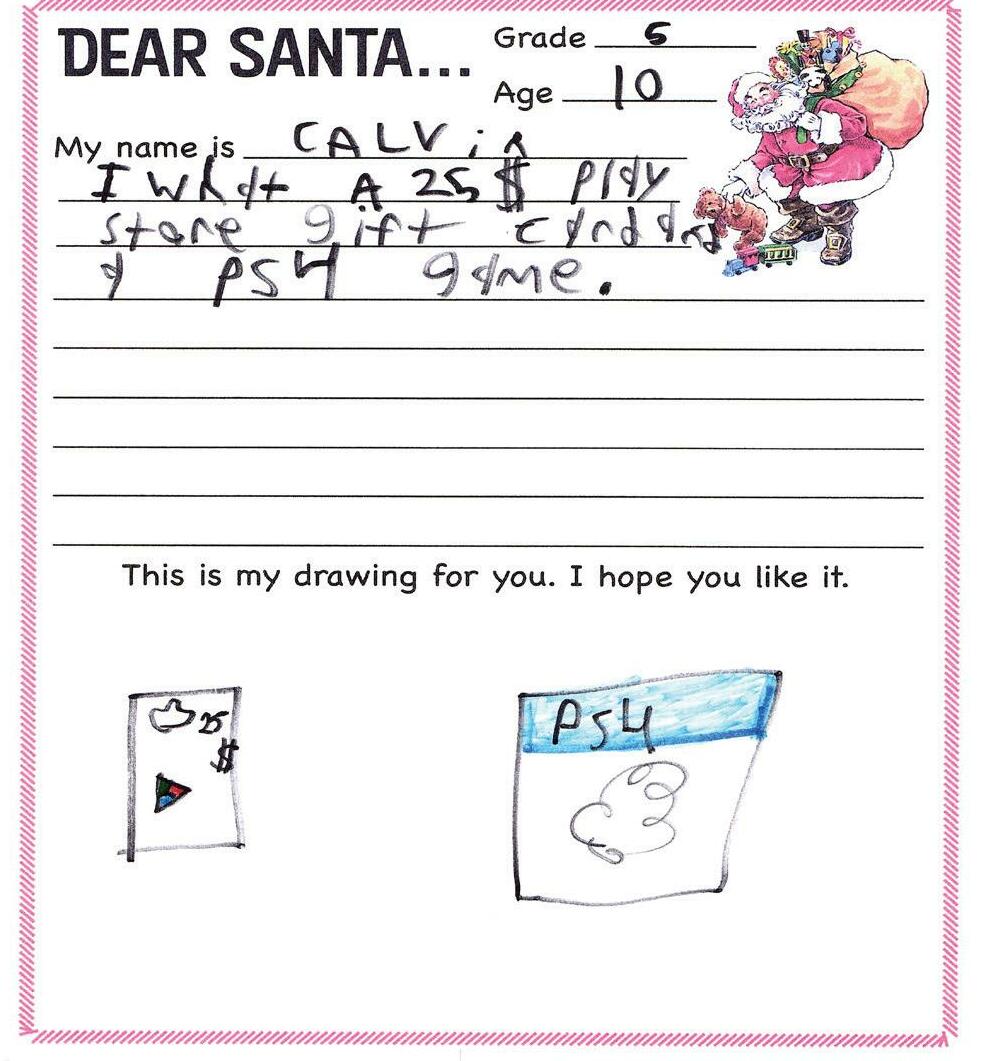 DEAR SANTA...
Grade 5
Age 10
My name is CALViN
I WANt A 25 $ PlAy
store gift cArd And
A PS4 gAme.
This is my drawing for you. I hope you like it.
25
$
PS4